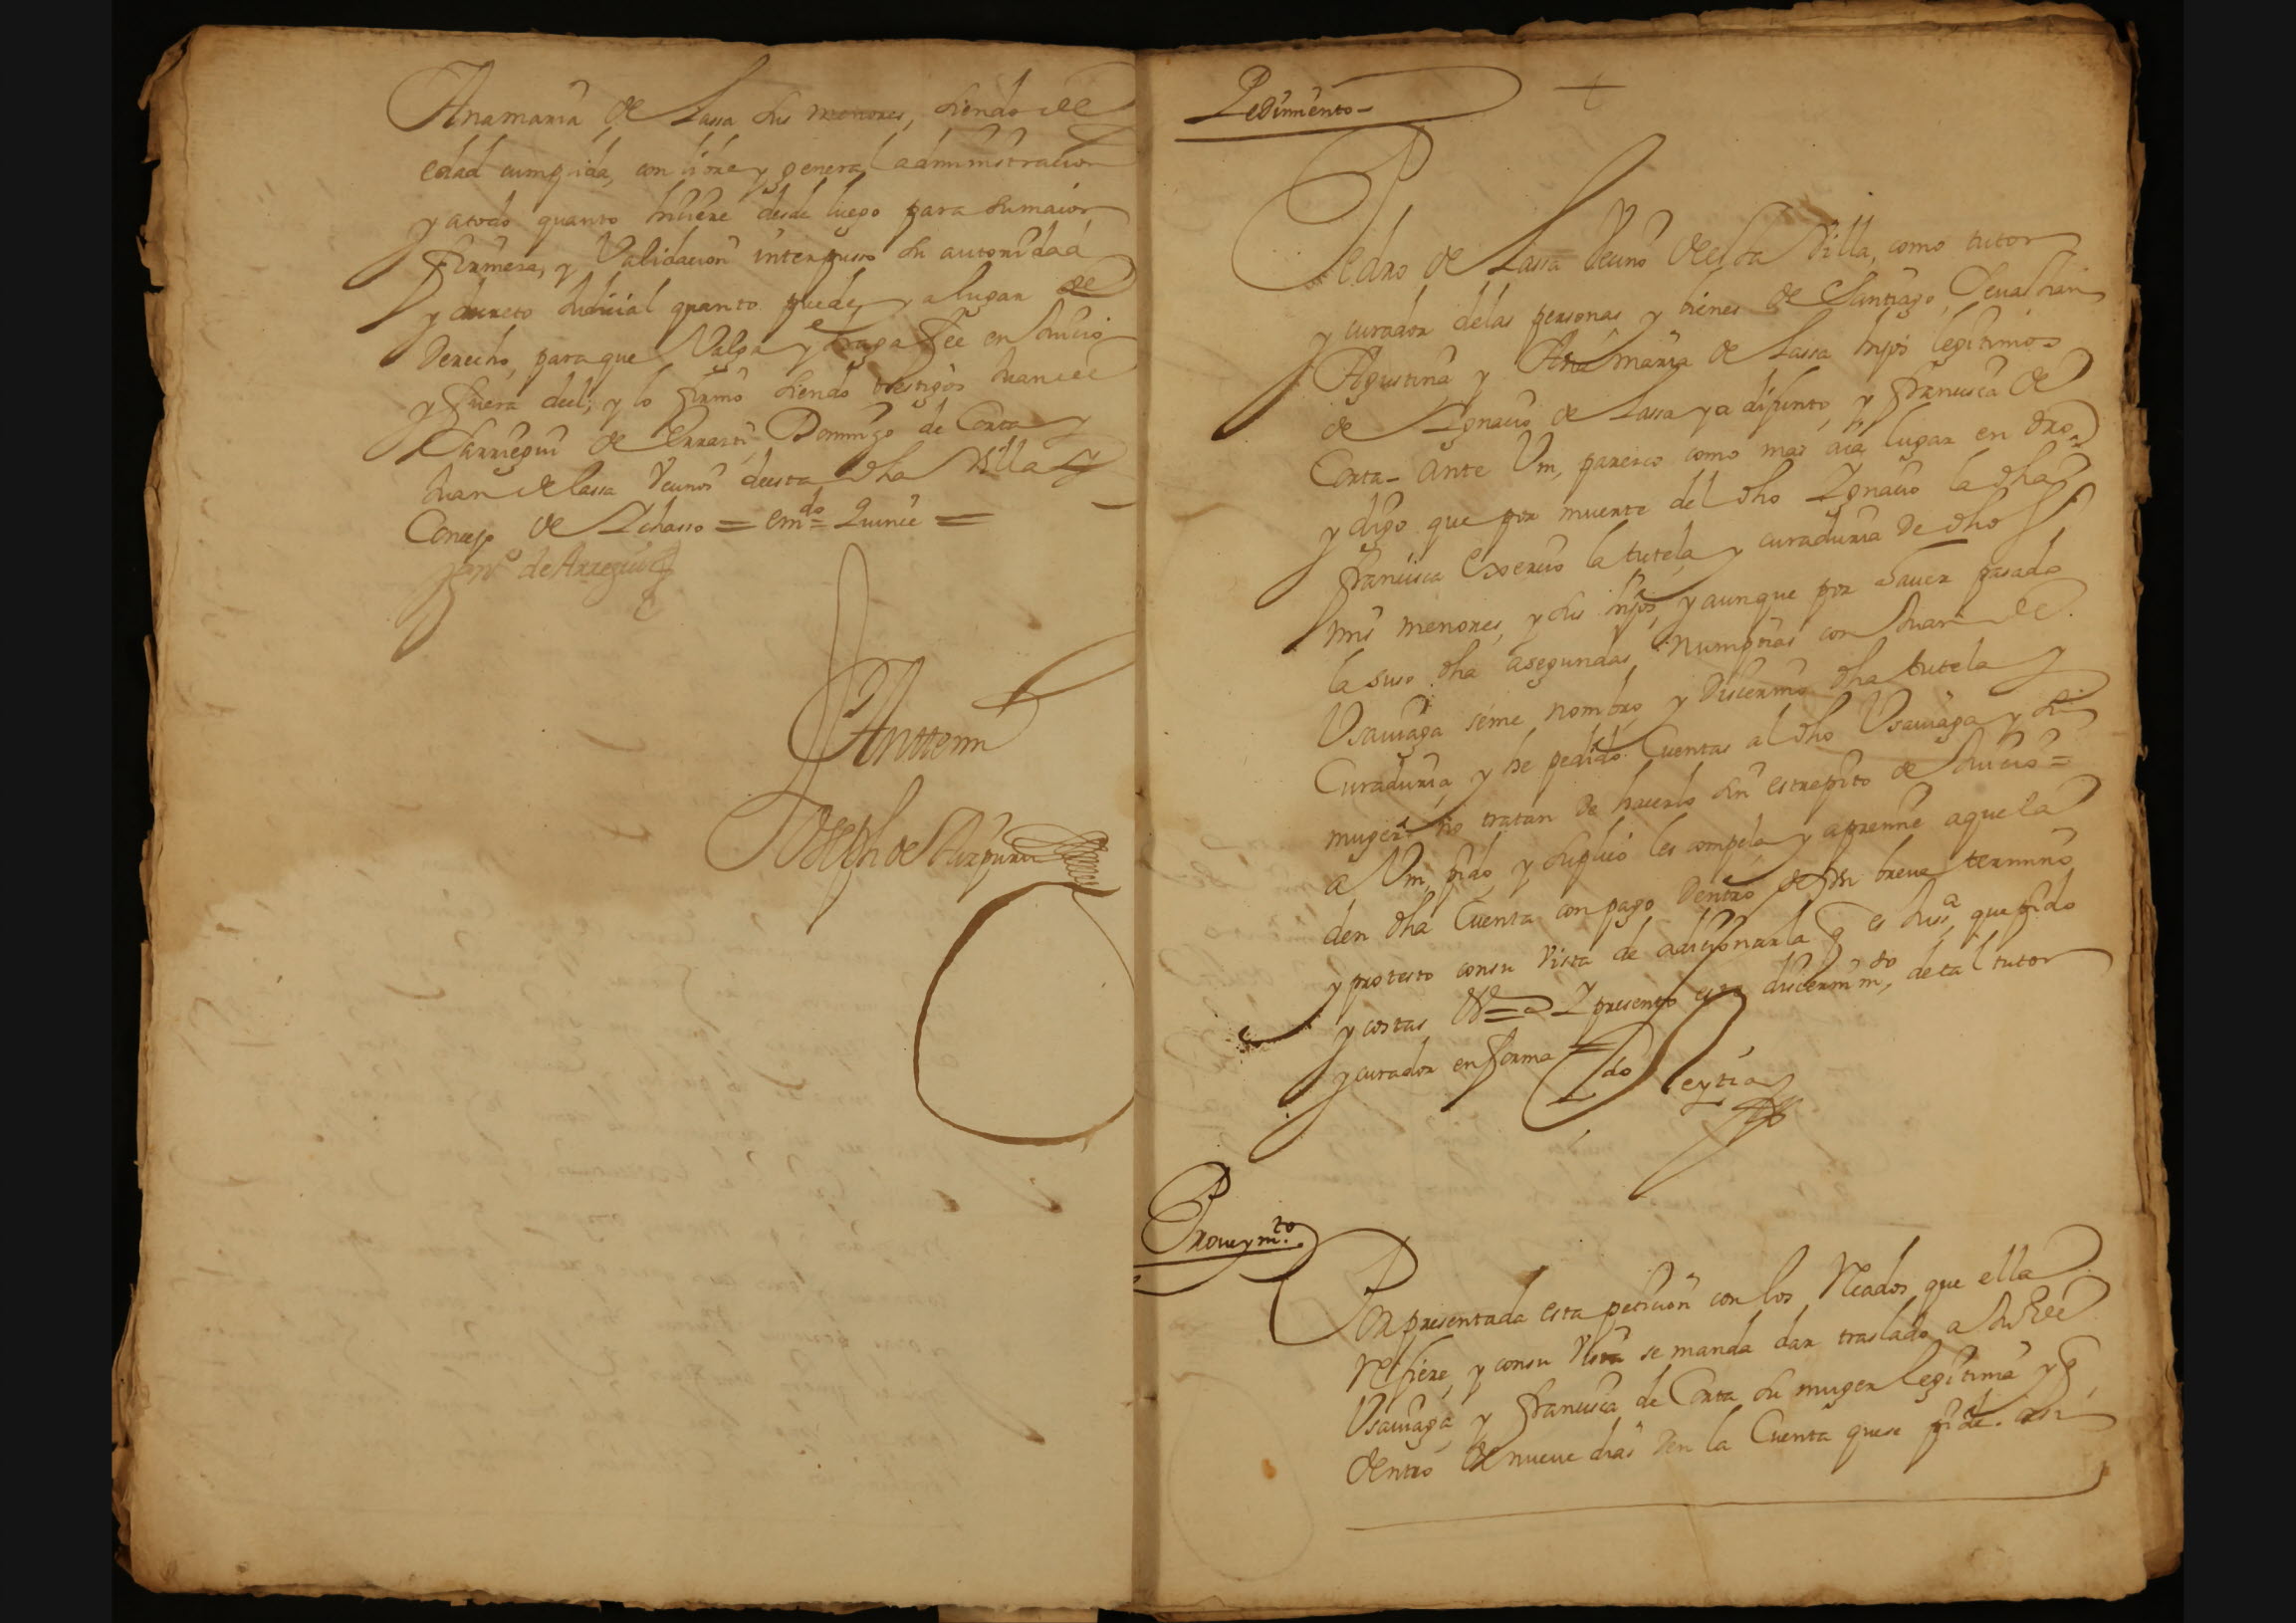 Anamaria de Lassa sus menores, siendo de
edad cumplida, con libre y general administracion
y atodo quanto hiciere desde luego para sumaior
firmeza, y Validacion interpuso su autoridad
y decreto Judicial quanto puede, y a lugar de
Derecho, para que Valga y haga fee en Juicio
y fuera del; y lo firmo siendo testigos Juan de
Larriegui de Errasti Domingo de Corta y
Juan de lassa Vecinos de esta dha Villa y
Concejo de Ichasso = em.do = Quince =
de Arregui
Anttemi
Joseph de Aizpuru
Pedimento
Pedro de Lassa Vecino de esta Villa, como tutor
y curador delas personas y bienes de Santiago, Sevastian
Agustina y Ana maria de Lassa hijos legitimos
de Ignacio de Lassa ya difunto, y francisca de
Corta - ante Vm, paresco como mas aia lugar en dro
y digo que por muerte del dho Ignacio la dha
francisca exercio la tutela, y curaduria de dhos
mis menores, y sus hijos, y aunque por aver pasado
la suso dha asegundas Numpcias con Juan de
Usauiaga seme nombro, y discernio dha tutela y
Curaduria, y he pedido Cuentas al dho Usauiaga y su
muger no tratan de hacerlo sin estrepito de Juicio =
a Vm, pido y suplico les compela y apremie aquela
den dha Cuenta con pago dentro de un breve termino
y protesto consu Vista de adicionarla q es Juss.a que pido
y costas &.a = Y presento este discernim.to de tal tutor
y curador en forma =
Ldo Leytia
Proueym.to
Por presentada esta peticion con los Recados que ella
Refiere, y consu Vista se manda dar traslado a Ju.o de
Usauiaga, y francisca de Corta su muger legitima y q
dentro de nueve dias den la Cuenta quese pide. assi